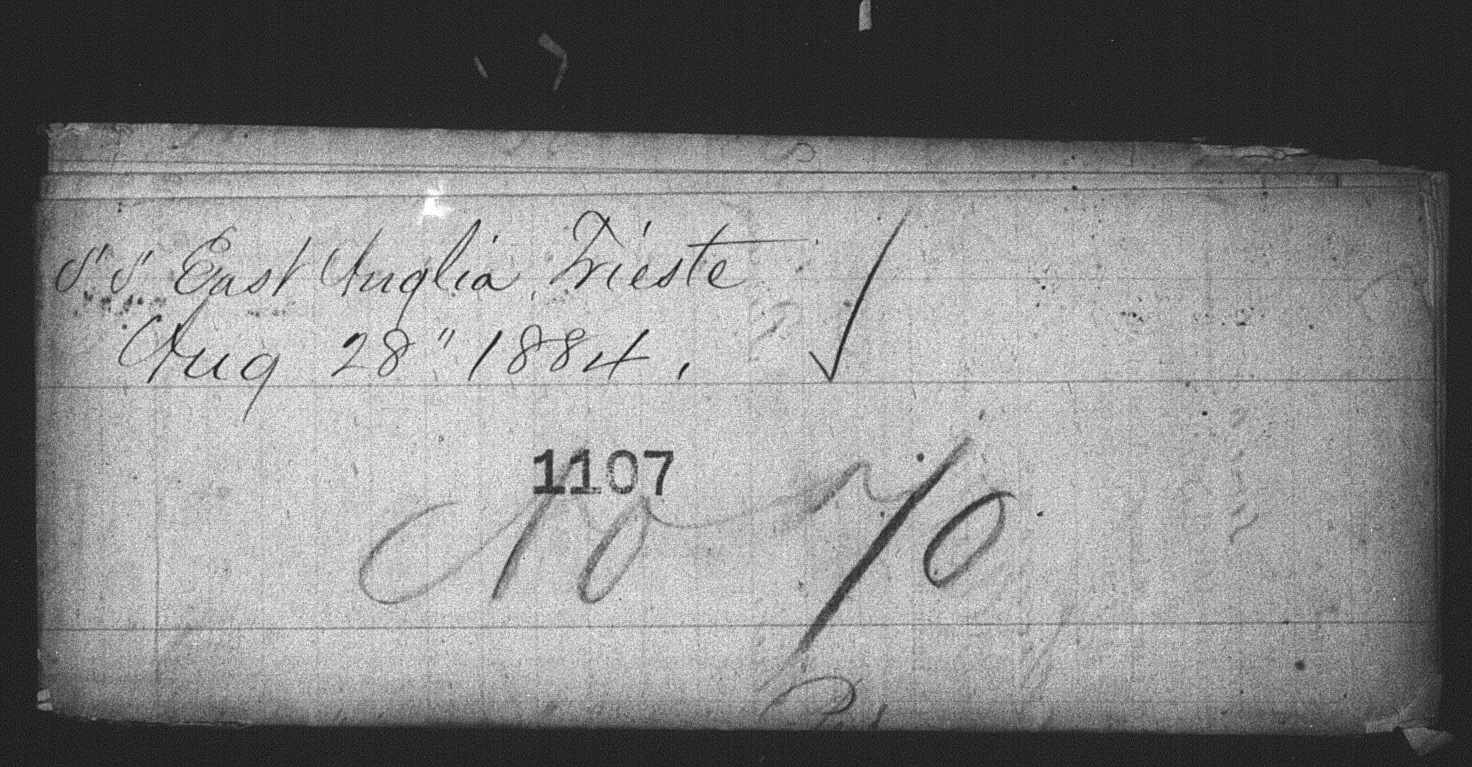 SS East Anglia, Trieste
Aug 28" 1884.
1107
No 70